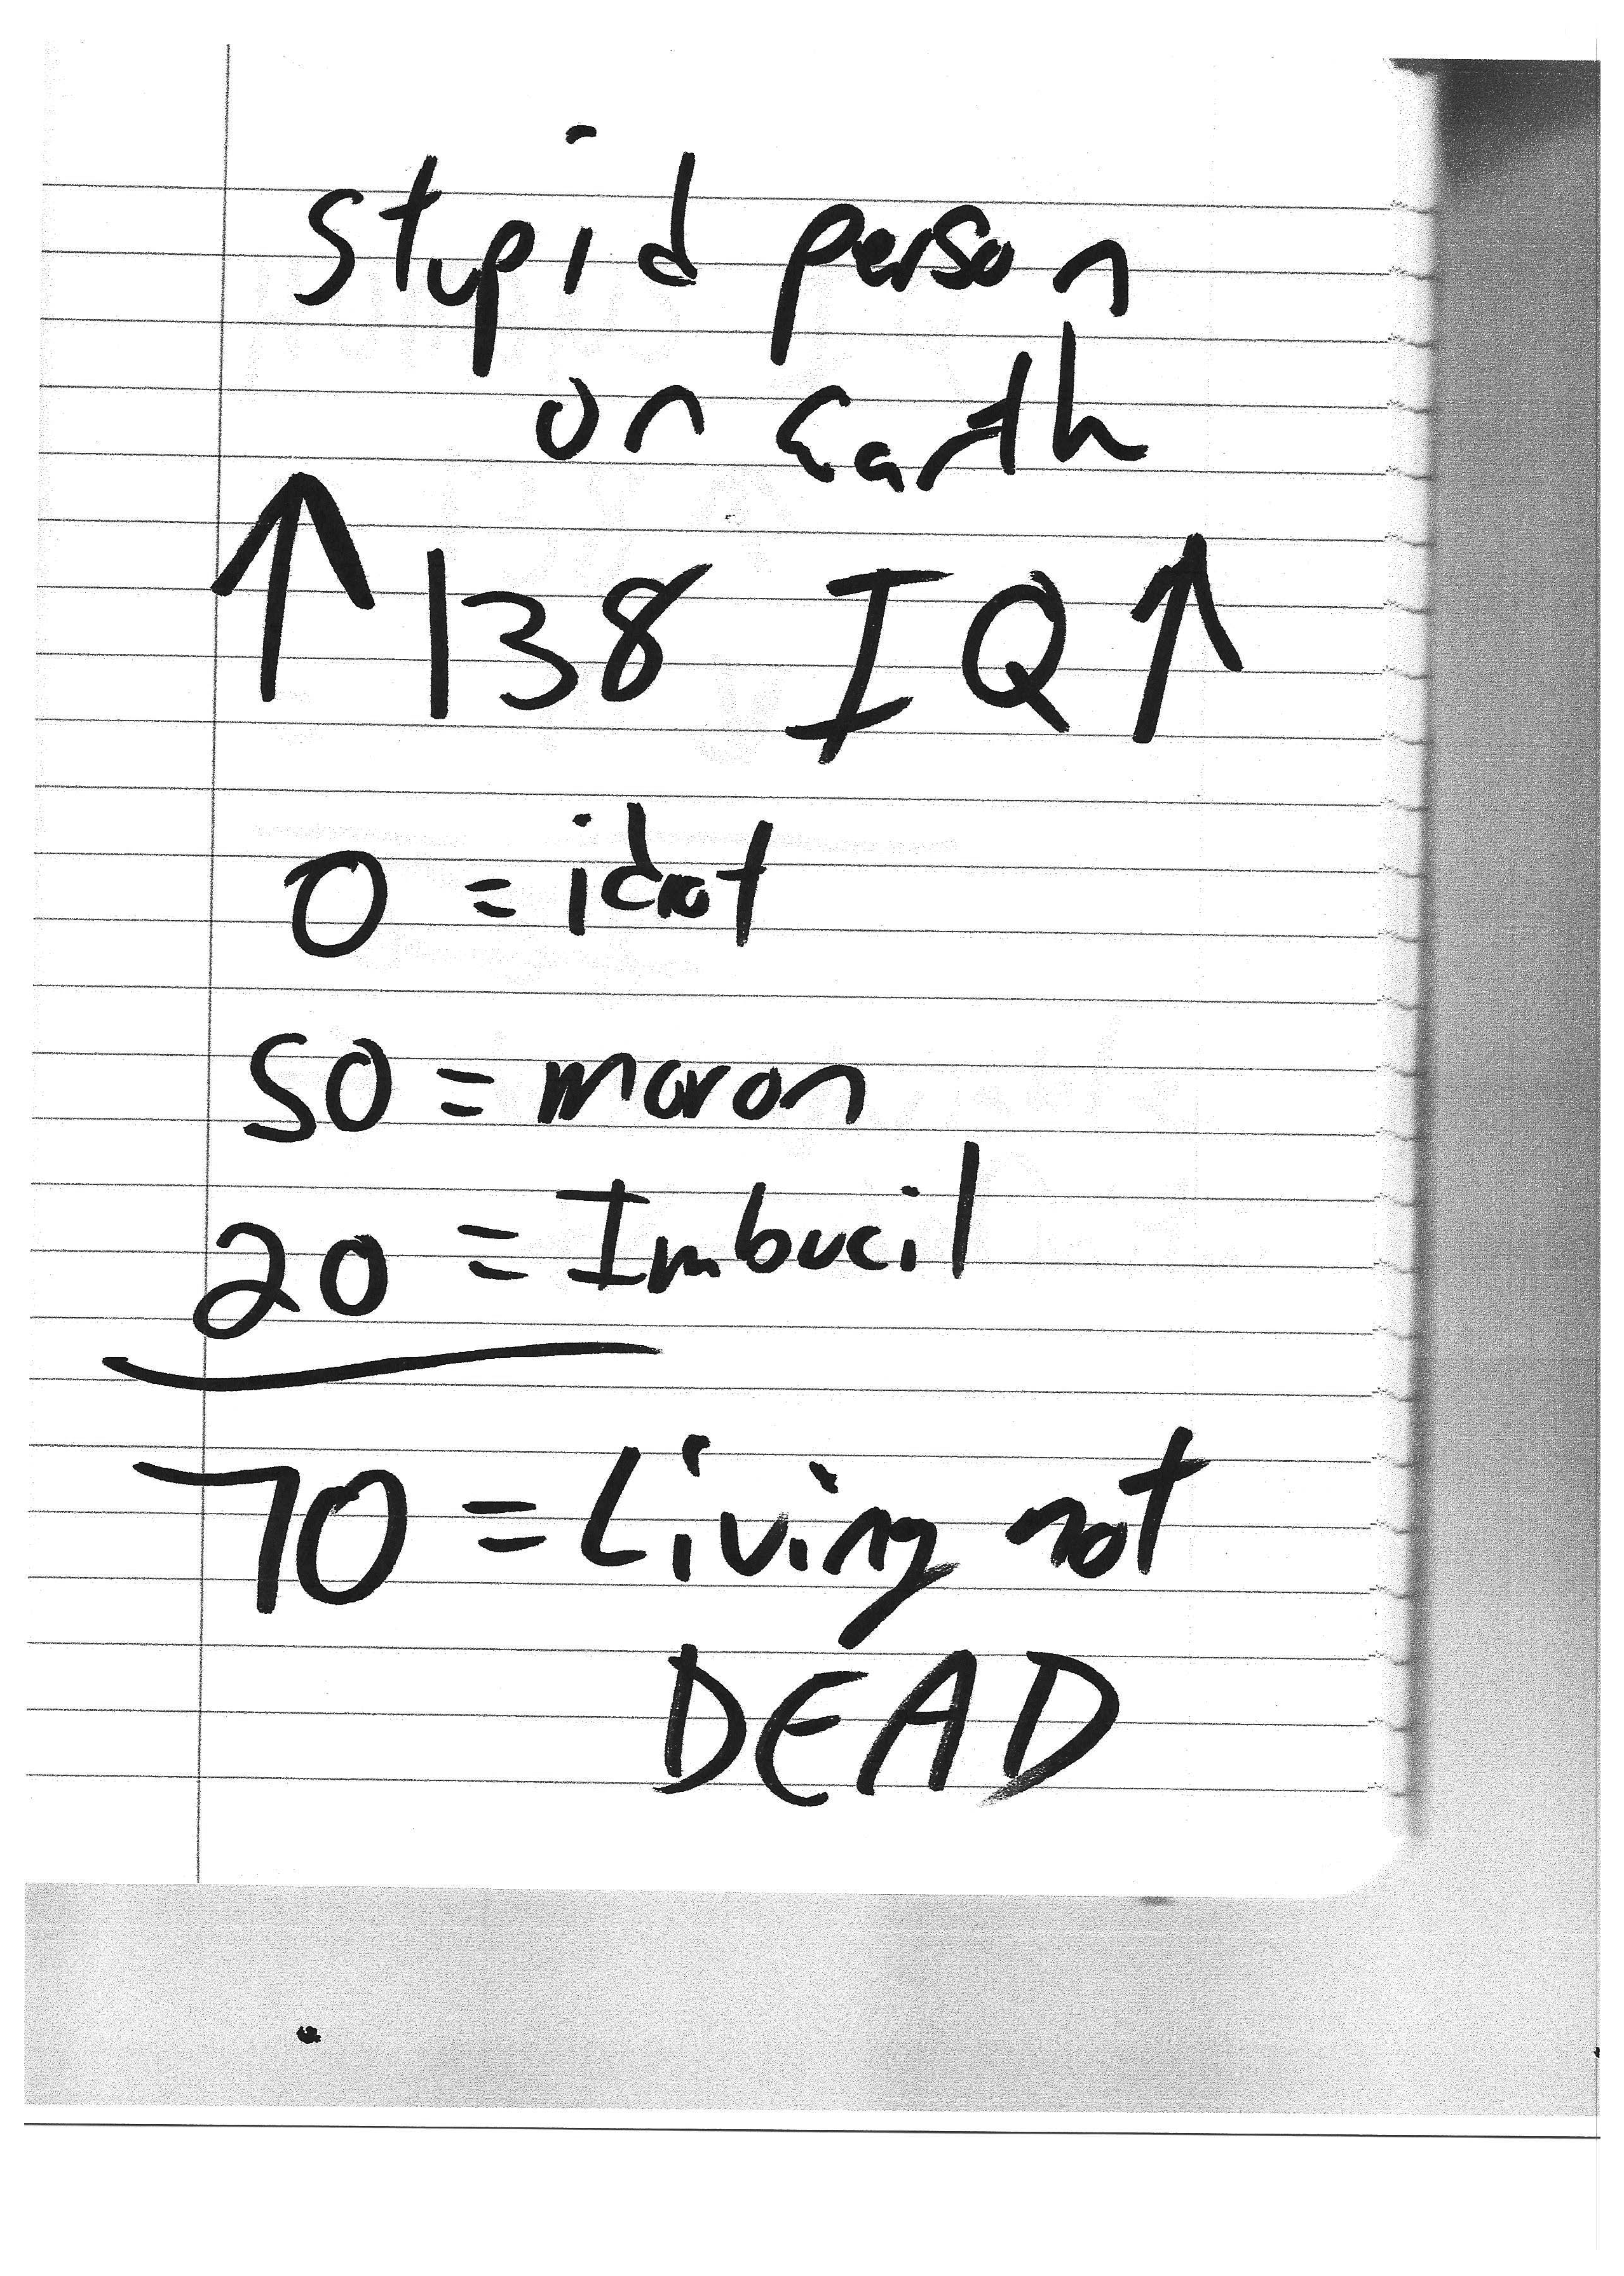 stupid person
on Earth
↑ 138 IQ ↑
0 = idiot
50 = moron
20 = Imbucil
70 = Living not
DEAD